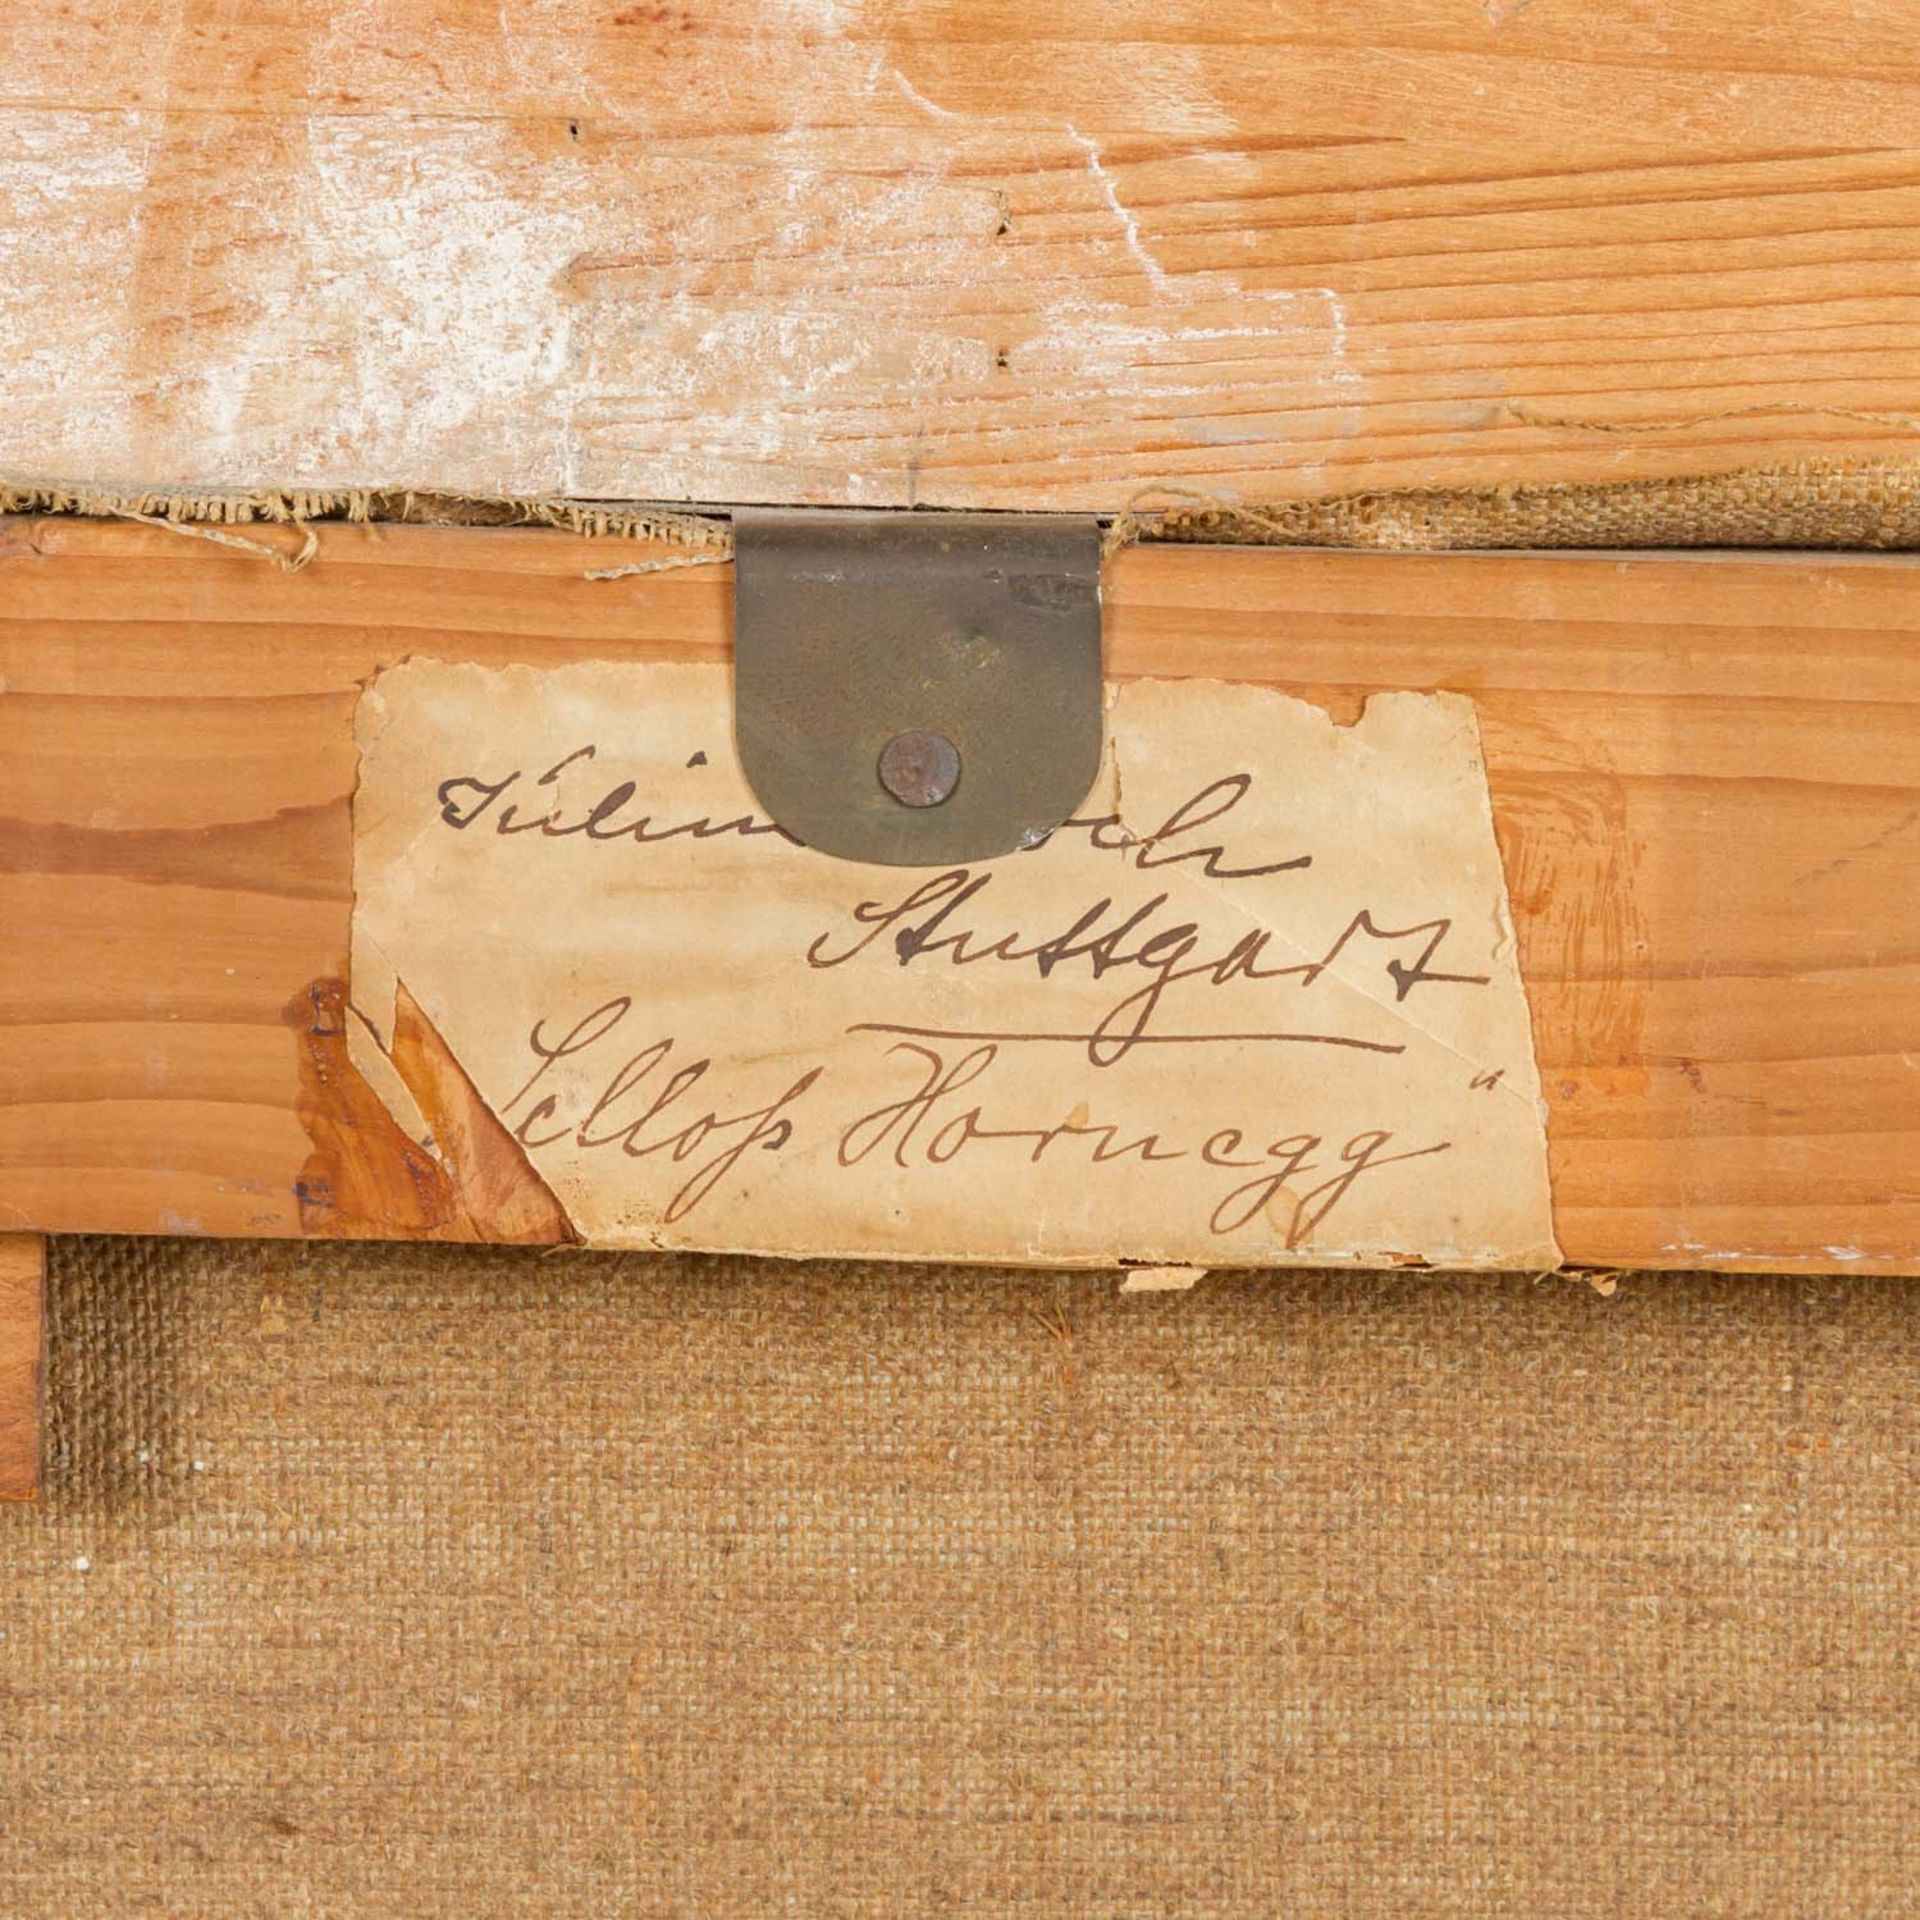 Julius
Stuttgart
Schloß Hornegg"